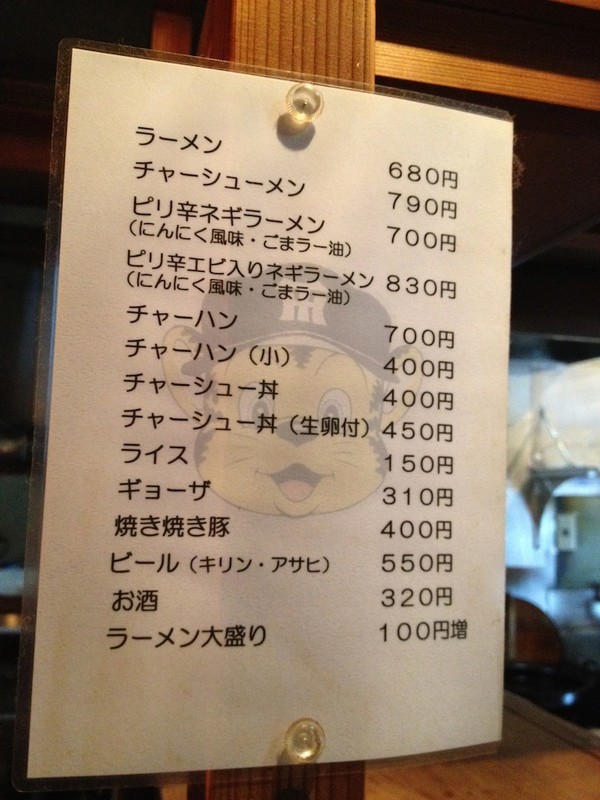 ラーメン 680円
チャーシューメン 790円
ピリ辛ネギラーメン 700円
（にんにく風味・ごまラー油）
ピリ辛エビ入りネギラーメン 830円
（にんにく風味・ごまラー油）
チャーハン 700円
チャーハン（小） 400円
チャーシュー丼 400円
チャーシュー丼（生卵付） 450円
ライス 150円
ギョーザ 310円
焼き焼き豚 400円
ビール（キリン・アサヒ） 550円
お酒 320円
ラーメン大盛り 100円増